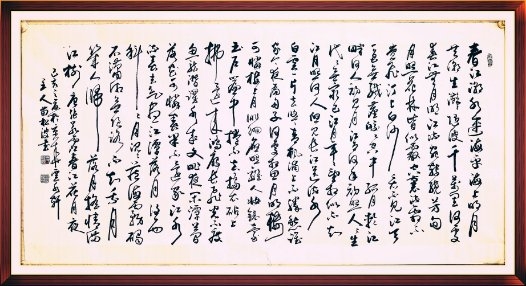 春江潮水連海平海上明月
共潮生灩灩隨波千萬里何處
春江無月明江流宛轉遶芳甸
月照花林皆似霰空裏流霜不
覺飛汀上白沙看不見江天
一色無纖塵皎皎空中孤月輪江
畔何人初見月江月何年初照人人生
代代無窮已江月年年只相似不知
江月待何人但見長江送流水
白雲一片去悠悠青楓浦上不勝愁誰
家今夜扁舟子何處相思明月樓
可憐樓上月徘徊應照離人妝鏡臺
玉戶簾中捲不去擣衣砧上
拂還來鴻雁長飛光不度
魚龍潛躍水成文昨夜閒潭夢
落花可憐春半不還家江水
流春去欲盡江潭落月復西
斜斜月沉沉藏海霧碣
石瀟湘無限路不知乘月
幾人歸落月搖情滿
江樹唐張若虛春江花月夜
己亥之春於
主人書